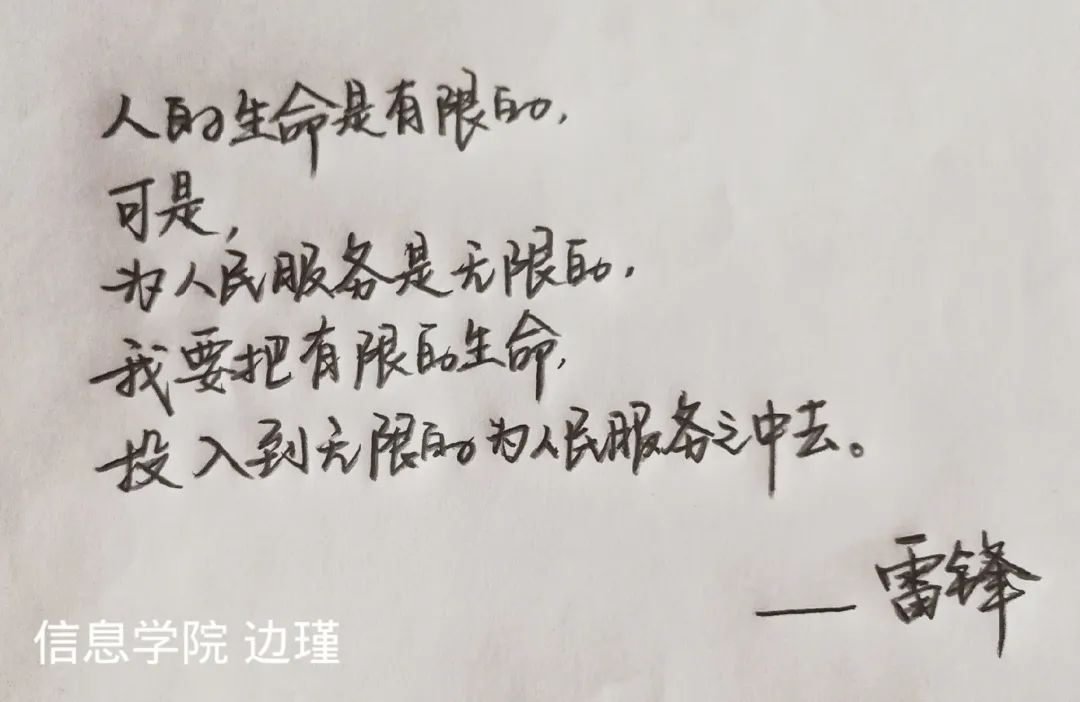 人的生命是有限的,
可是,
为人民服务是无限的,
我要把有限的生命,
投入到无限的为人民服务之中去。
——雷锋
信息学院 边瑾